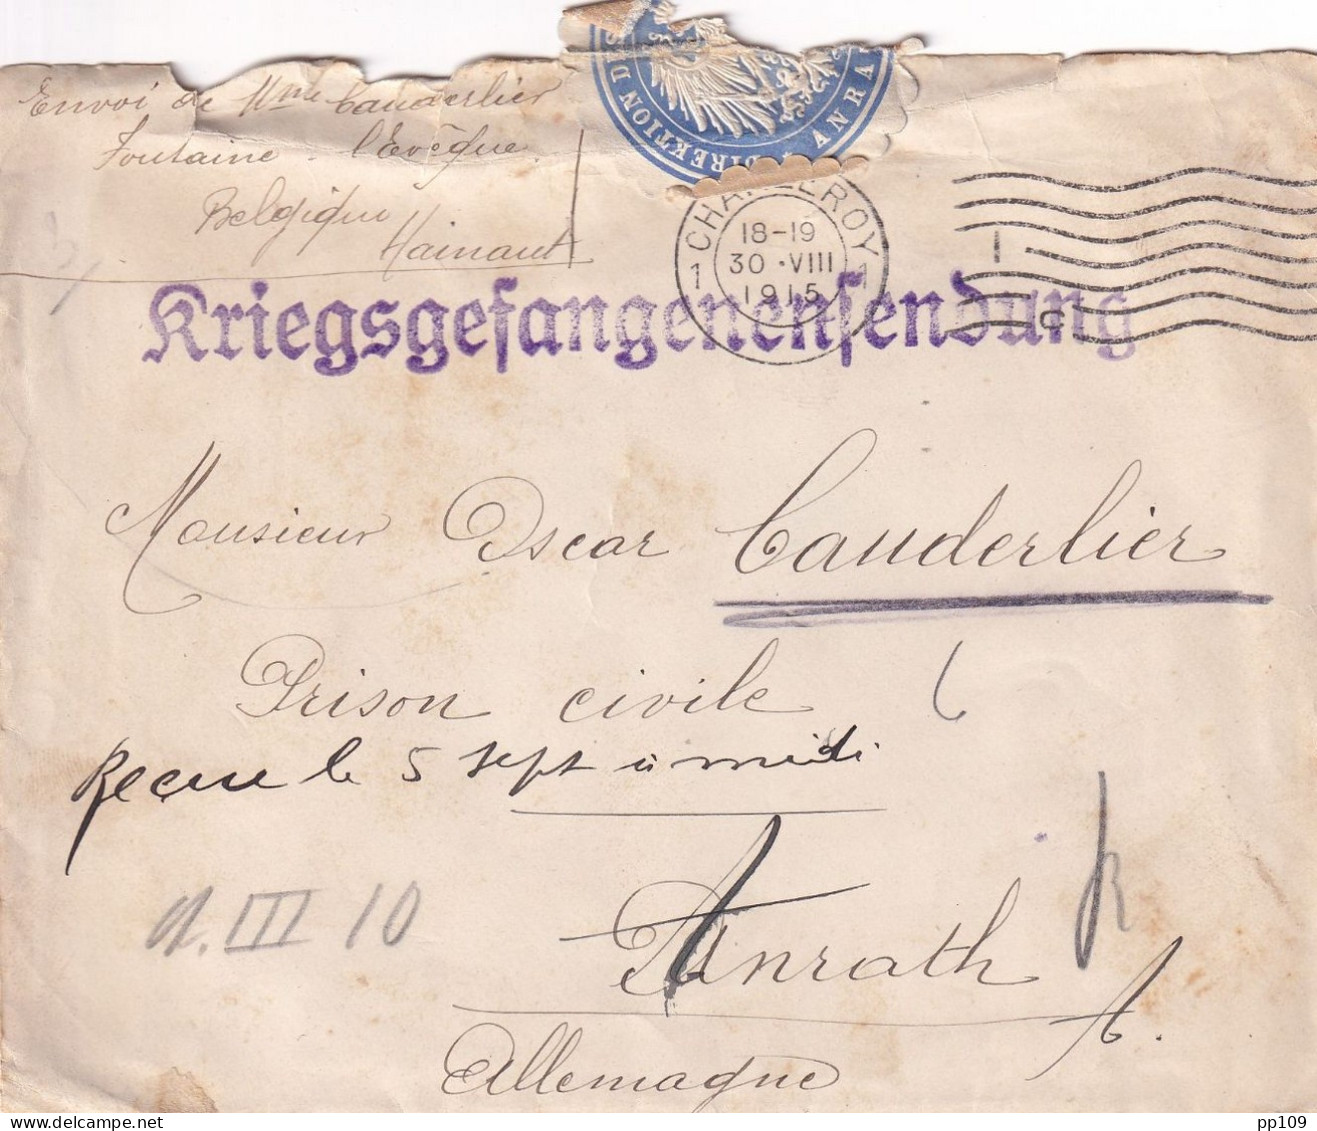 Envoi de Mme Cauderlier
Fontaine - l'Evêque
Belgique
Hainaut
DIREKTION DES
ANRA
CHARLEROY
1 1
18-19
30 · VIII
1915
Kriegsgefangenensendung
Monsieur Oscar Cauderlier
Prison civile
Reçue le 5 sept à midi
Anrath
III 10
A.
Allemagne
pp109